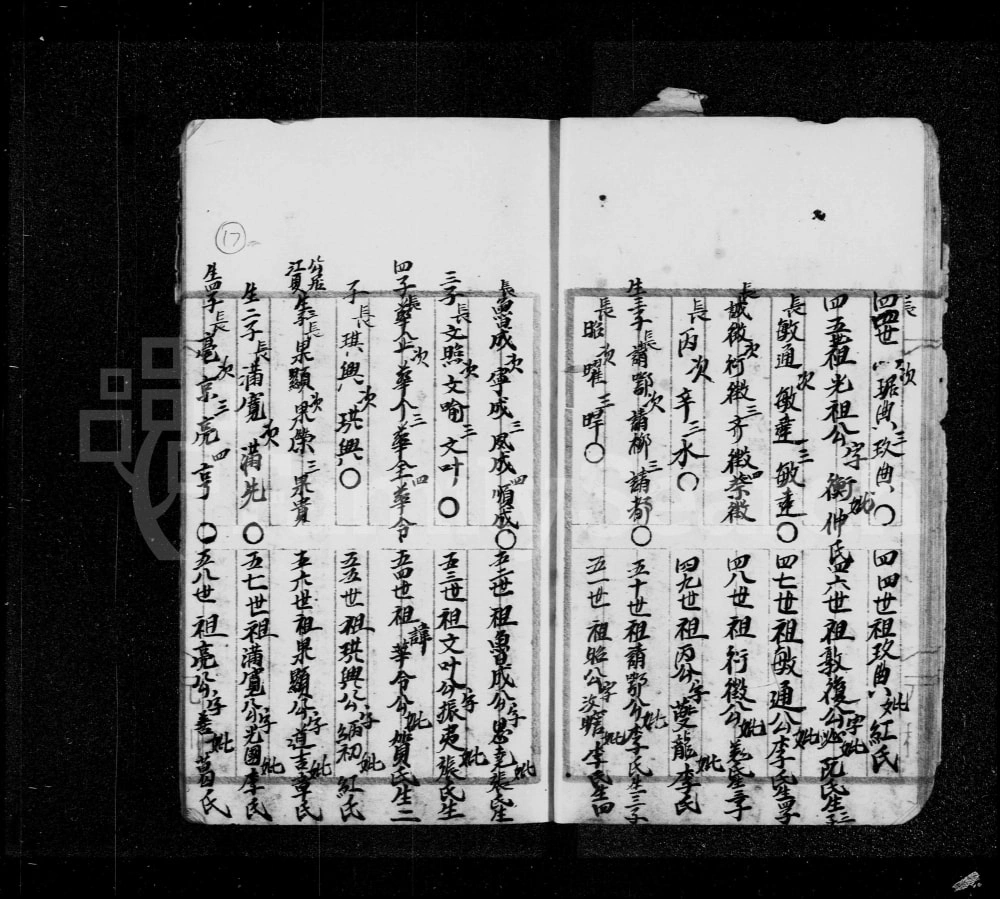 四四世 長 琚典 次 玖典 三 〇 四四世祖玖典公妣紅氏
四五世祖光祖公字衡仲妣氏 四六世祖敦復公字 妣阮氏生三子
長敏通 次敏達 三敏逵〇 四七世祖敏通公妣李氏生四子
長誠徵 次衍徵 三齐徵 四荣徵 四八世祖衍徵公妣姜氏生三子
長丙 次辛 三水〇 四九世祖丙公字雙龍妣李氏
生三子 長請鄂 次請柳 三請都〇 五十世祖請鄂公妣李氏生三子
長昭 次曜 三暉〇 五一世祖昭公字汝瞻妣李氏生四
長魯成 次寧成 三風成 四順成〇 五二世祖魯成公字思尭妣張氏生
三子 長文照 次文喻 三文叶〇 五三世祖文叶公字振夷妣張氏生
四子 長華止 次華个 三華全 四華令 五四世祖諱華令公妣賀氏生二
子 長琪興 次珙興〇 五五世祖珙興公字炳初妣紅氏
公居江夏生三子 長果顯 次果榮 三果貴 五六世祖果顯公字道吉妣章氏
生二子 長滿寬 次滿先〇 五七世祖滿寬公字光國妣李氏
生四子 長亳 次京 三亮 四亨〇 五八世祖亮公字善 妣葛氏
17